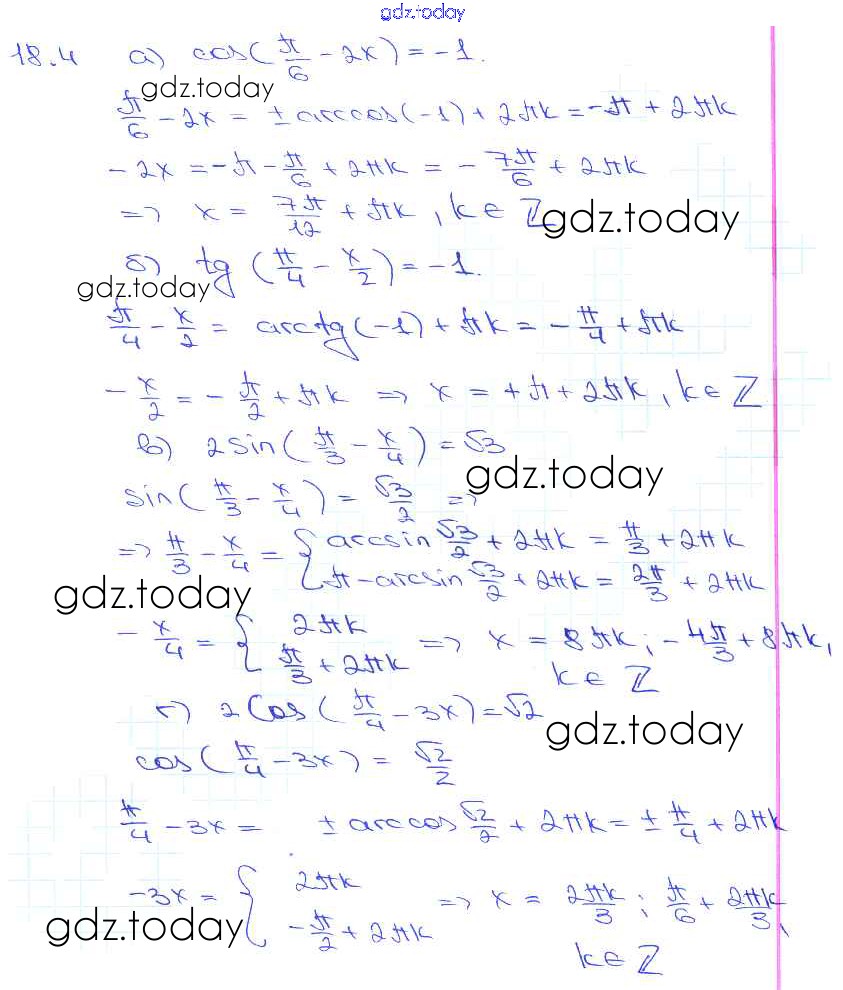 gdz.today
18.4 а) cos(π/6 - 2x) = -1.
gdz.today
π/6 - 2x = ± arccos(-1) + 2πk = -π + 2πk
-2x = -π - π/6 + 2πk = - 7π/6 + 2πk
=> x = 7π/12 + πk, k ∈ ℤ
gdz.today
б) tg (π/4 - x/2) = -1.
gdz.today
π/4 - x/2 = arctg(-1) + πk = - π/4 + πk
- x/2 = - π/2 + πk => x = +π + 2πk, k ∈ ℤ
в) 2sin(π/3 - x/4) = √3
gdz.today
sin(π/3 - x/4) = √3/2 =>
=> π/3 - x/4 = { arcsin √3/2 + 2πk = π/3 + 2πk
π - arcsin √3/2 + 2πk = 2π/3 + 2πk
gdz.today
- x/4 = { 2πk
π/3 + 2πk => x = 8πk; - 4π/3 + 8πk,
k ∈ ℤ
г) 2cos(π/4 - 3x) = √2
gdz.today
cos(π/4 - 3x) = √2/2
π/4 - 3x = ± arccos √2/2 + 2πk = ± π/4 + 2πk
-3x = { 2πk
- π/2 + 2πk => x = 2πk/3; π/6 + 2πk/3,
gdz.today
k ∈ ℤ